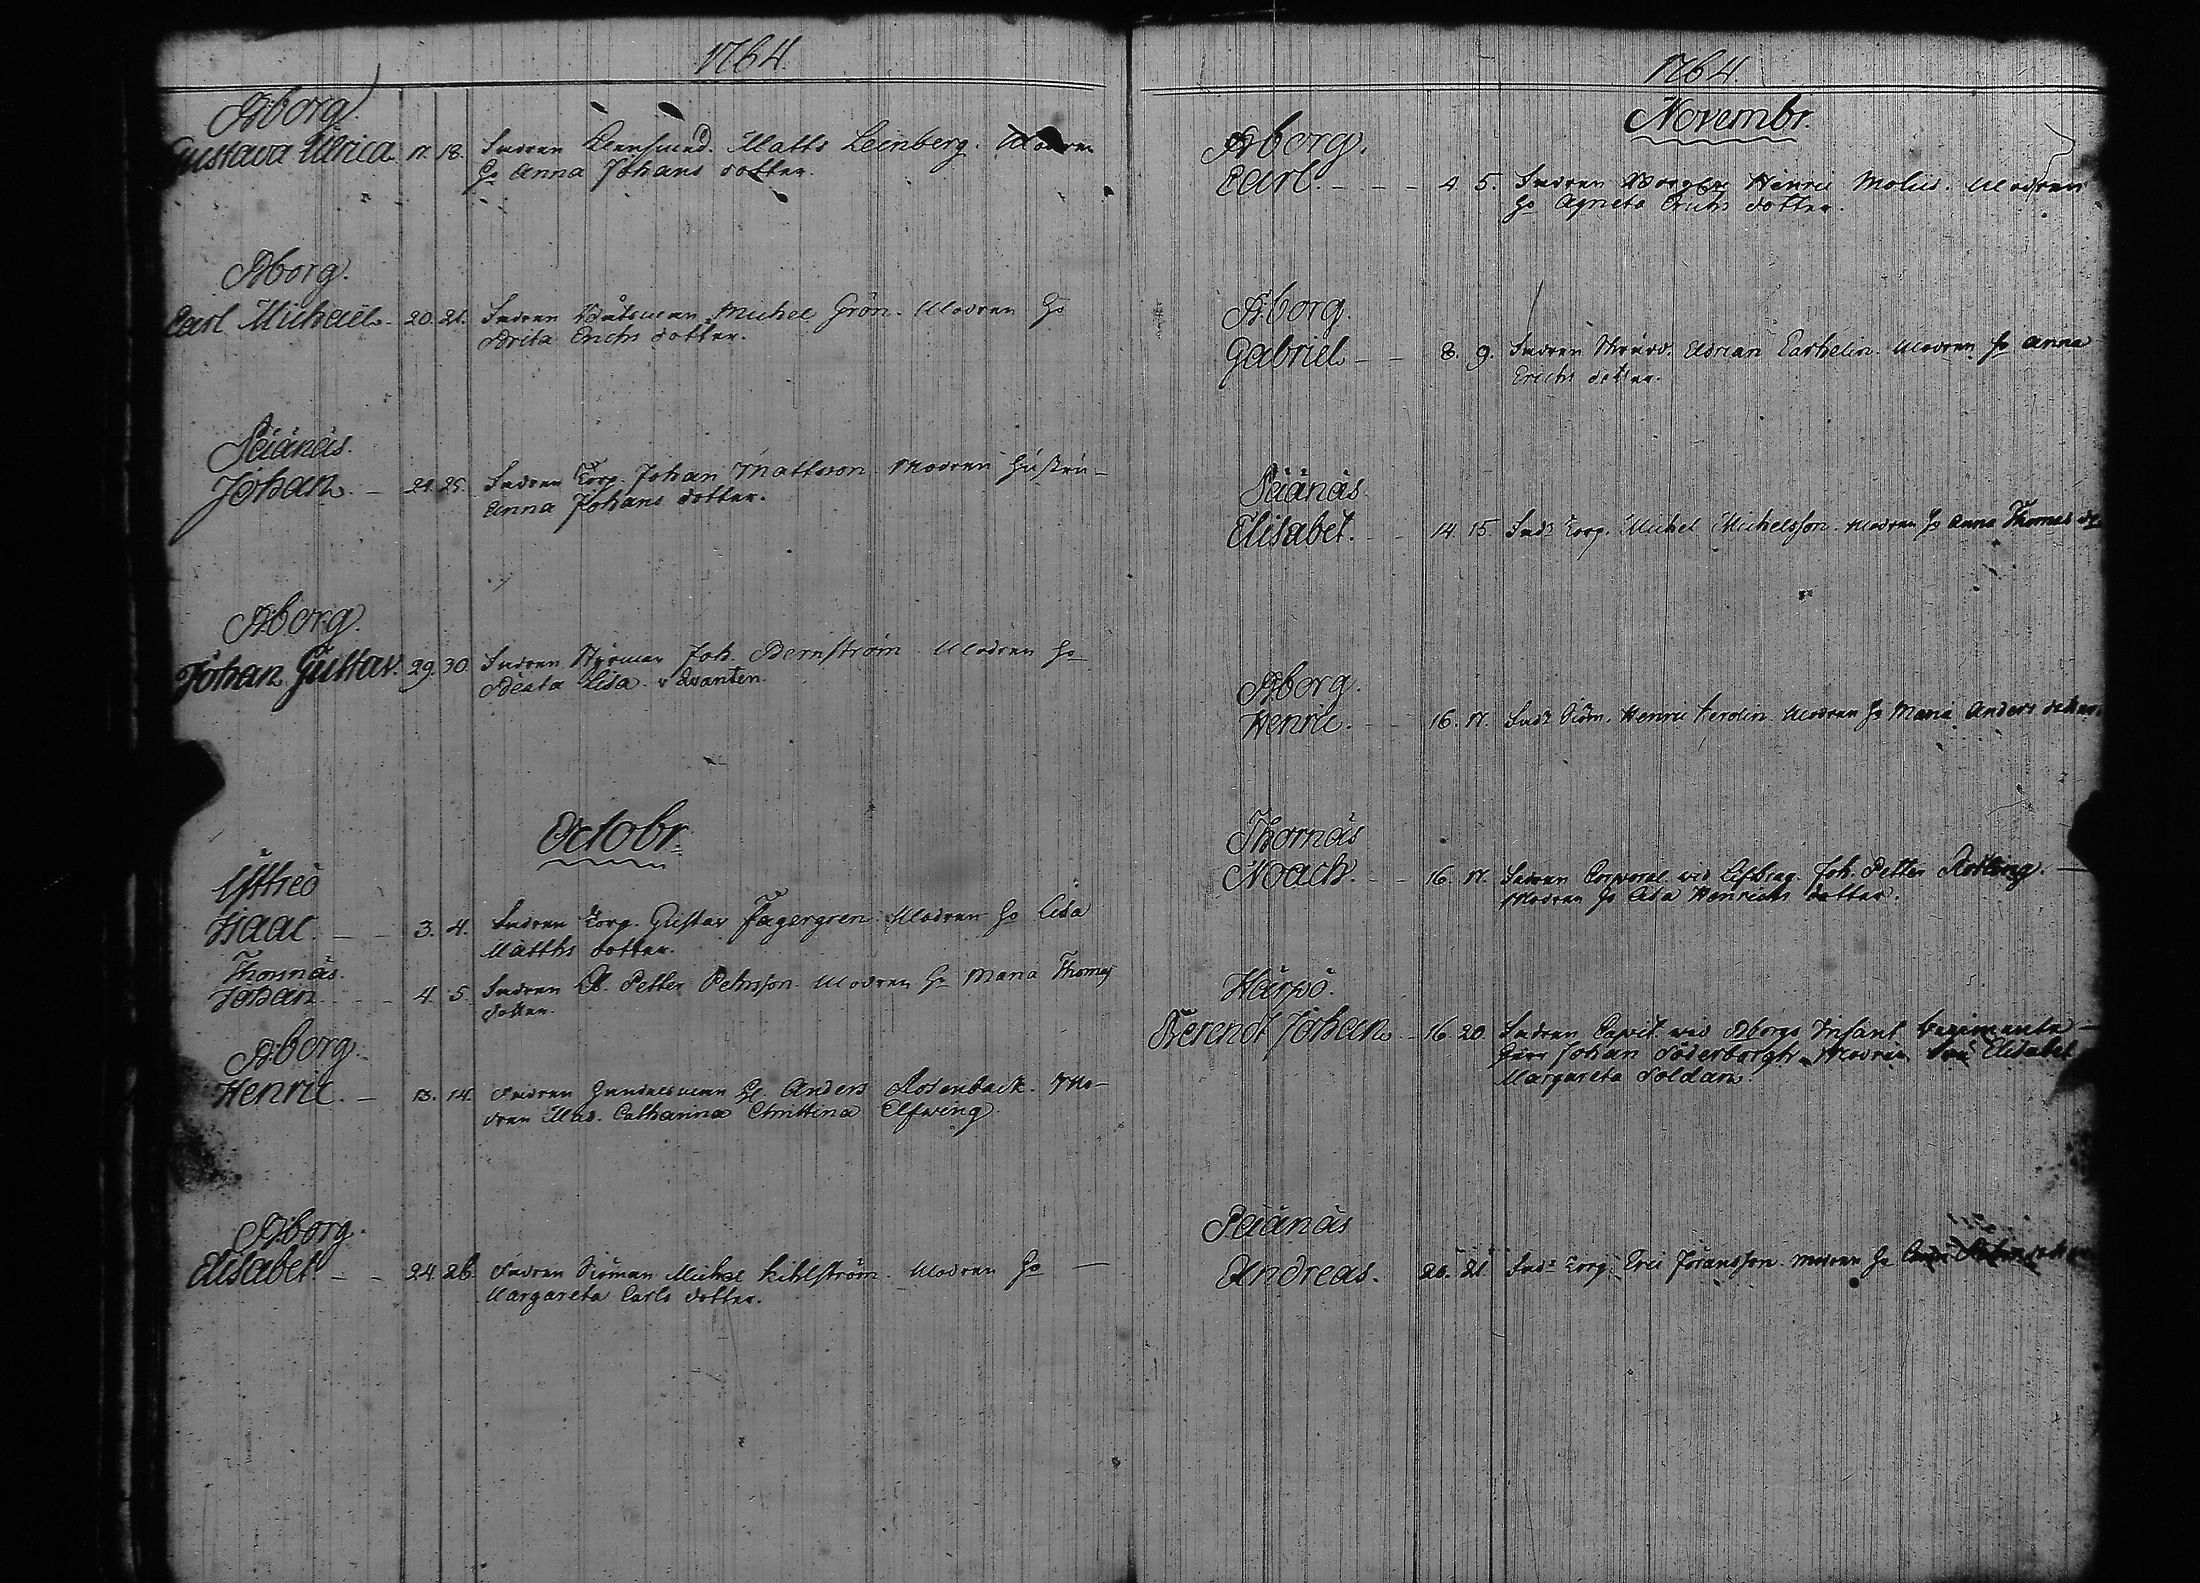 1764.
B:borg.
Gustava Ulrica. 17. 18. Fadren Matts Leinberg. Modren
Hs Anna Johans dotter.
B:borg.
Carl Michael. 20. 21. Fadren Båtsman Michel Grön. Modren Hs
Brita Erichs dotter.
Säänäs.
Johan. 24. 25. Fadren Torp. Johan Mattsson Modren Hustru
Anna Johans dotter.
B:borg.
Johan Gustav. 29. 30. Fadren Styrman Joh. Bernström Modren Hs
Beata Lisa v Qvanten.
Octobr.
Ytterö
Isaac. 3. 4. Fadren Torp. Gustav Fagergren. Modren Hs Lisa
Matths dotter.
Thornäs.
Johan 4. 5. Fadren Petter Pehrsson Modren Hs Maria Thomas
dotter.
B:borg.
Henric. 13. 14. Fadren Handelsman Hr Anders Rosenback. Mo-
dren Mad. Catharina Christina Elfving.
B:borg.
Elisabet. 24. 26. Fadren Siöman Michel Kihlström. Modren Hs
Margareta Carls dotter.
1764.
Novembr.
B:borg.
Carl. 4. 5. Fadren Borgare Henric Molin. Modren
Hs Agneta Erichs dotter.
B:borg.
Gabriel 8. 9. Fadren Skräd. Adrian Carhelin. Modren Hs Anna
Erichs dotter.
Säänäs
Elisabet. 14. 15. Fadr Torp. Michel Michelsson. Modren Hs Anna Thomas
B:borg.
Henric. 16. 17. Fadr Siöm. Henric Kerolin Modren Hs Maria Anders dotter
Thornäs
Noach. 16. 17. Fadren Corporal vid Joh. Petter
Modren Hs Lisa Henrichs dotter.
Härpö.
Berendt Johan. 16 20. Fadren Capit. vid B:borgs Infant. Regimente
Herr Johan Söderborgh. Modren Fru Elisabet
Margareta Soldan.
Säänäs
Andreas. 20. 21. Fadr Torp. Eric Joransson. Modren Hs